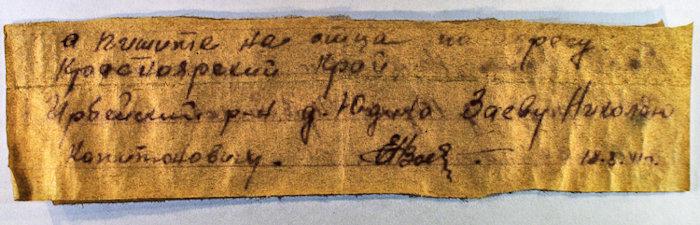 а пишите на отца по адресу.
Красноярский Край
Ирбейский р-н д. Юдино Заеву Николаю
Капитоновичу. 18.8.41г.